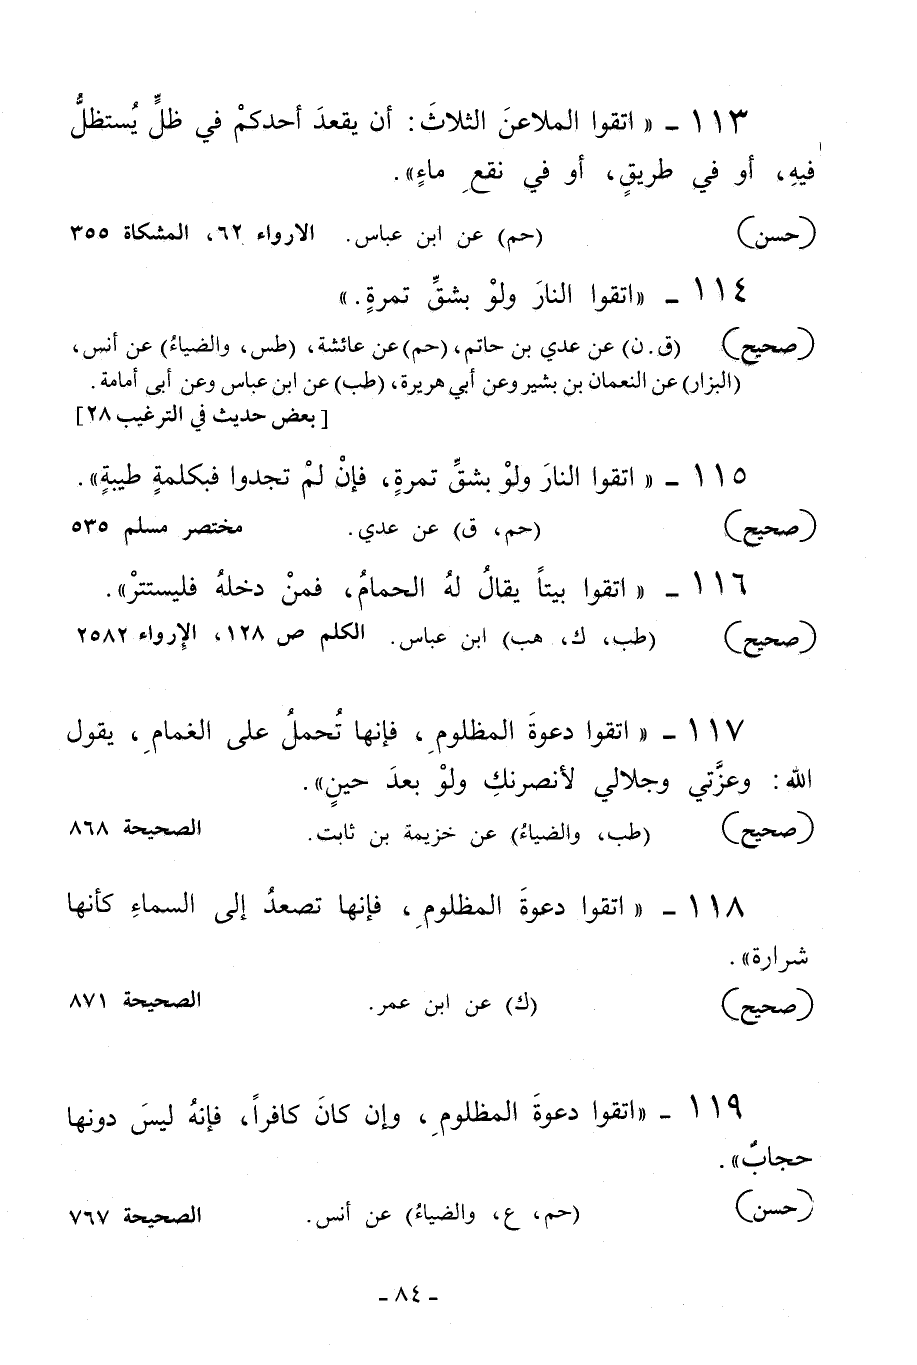 ١١٣ - « اتقوا الملاعنَ الثلاثَ: أن يقعدَ أحدكمْ في ظلٍّ يُستظلُّ
فيهِ، أو في طريقٍ، أو في نقعِ ماءٍ».
(حسن) (حم) عن ابن عباس. الارواء ٦٢، المشكاة ٣٥٥
١١٤ - «اتقوا النارَ ولوْ بشقِّ تمرةٍ.»
(صحيح) (ق.ن) عن عدي بن حاتم، (حم) عن عائشة، (طس، والضياءُ) عن أنس،
(البزار) عن النعمان بن بشير وعن أبي هريرة، (طب) عن ابن عباس وعن أبى أمامة.
[بعض حديث في الترغيب ٢٨]
١١٥ - « اتقوا النارَ ولوْ بشقِّ تمرةٍ، فإنْ لمْ تجدوا فبكلمةٍ طيبةٍ».
(صحيح) (حم، ق) عن عدي. مختصر مسلم ٥٣٥
١١٦ - « اتقوا بيتاً يقالُ لهُ الحمامُ، فمنْ دخلهُ فليستترْ».
(صحيح) (طب، ك، هب) ابن عباس. الكلم ص ١٢٨، الإرواء ٢٥٨٢
١١٧ - « اتقوا دعوةَ المظلومِ، فإنها تُحملُ على الغمامِ، يقول
الله: وعزَّتي وجلالي لأنصرنكِ ولوْ بعدَ حينٍ».
(صحيح) (طب، والضياءُ) عن خزيمة بن ثابت. الصحيحة ٨٦٨
١١٨ - « اتقوا دعوةَ المظلومِ، فإنها تصعدُ إلى السماءِ كأنها
شرارة».
(صحيح) (ك) عن ابن عمر. الصحيحة ٨٧١
١١٩ - «اتقوا دعوةَ المظلومِ، وإن كانَ كافراً، فإنهُ ليسَ دونها
حجابٌ».
(حسن) (حم، ع، والضياءُ) عن أنس. الصحيحة ٧٦٧
- ٨٤ -